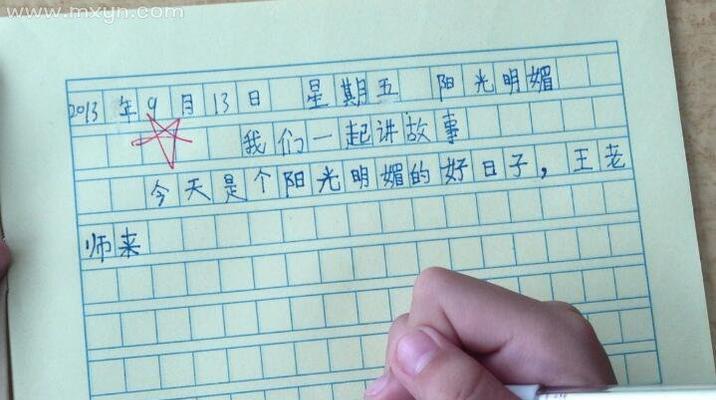 www.mxyn.com
2013年9月13日 星期五 阳光明媚
我们一起讲故事
今天是个阳光明媚的好日子，王老
师来